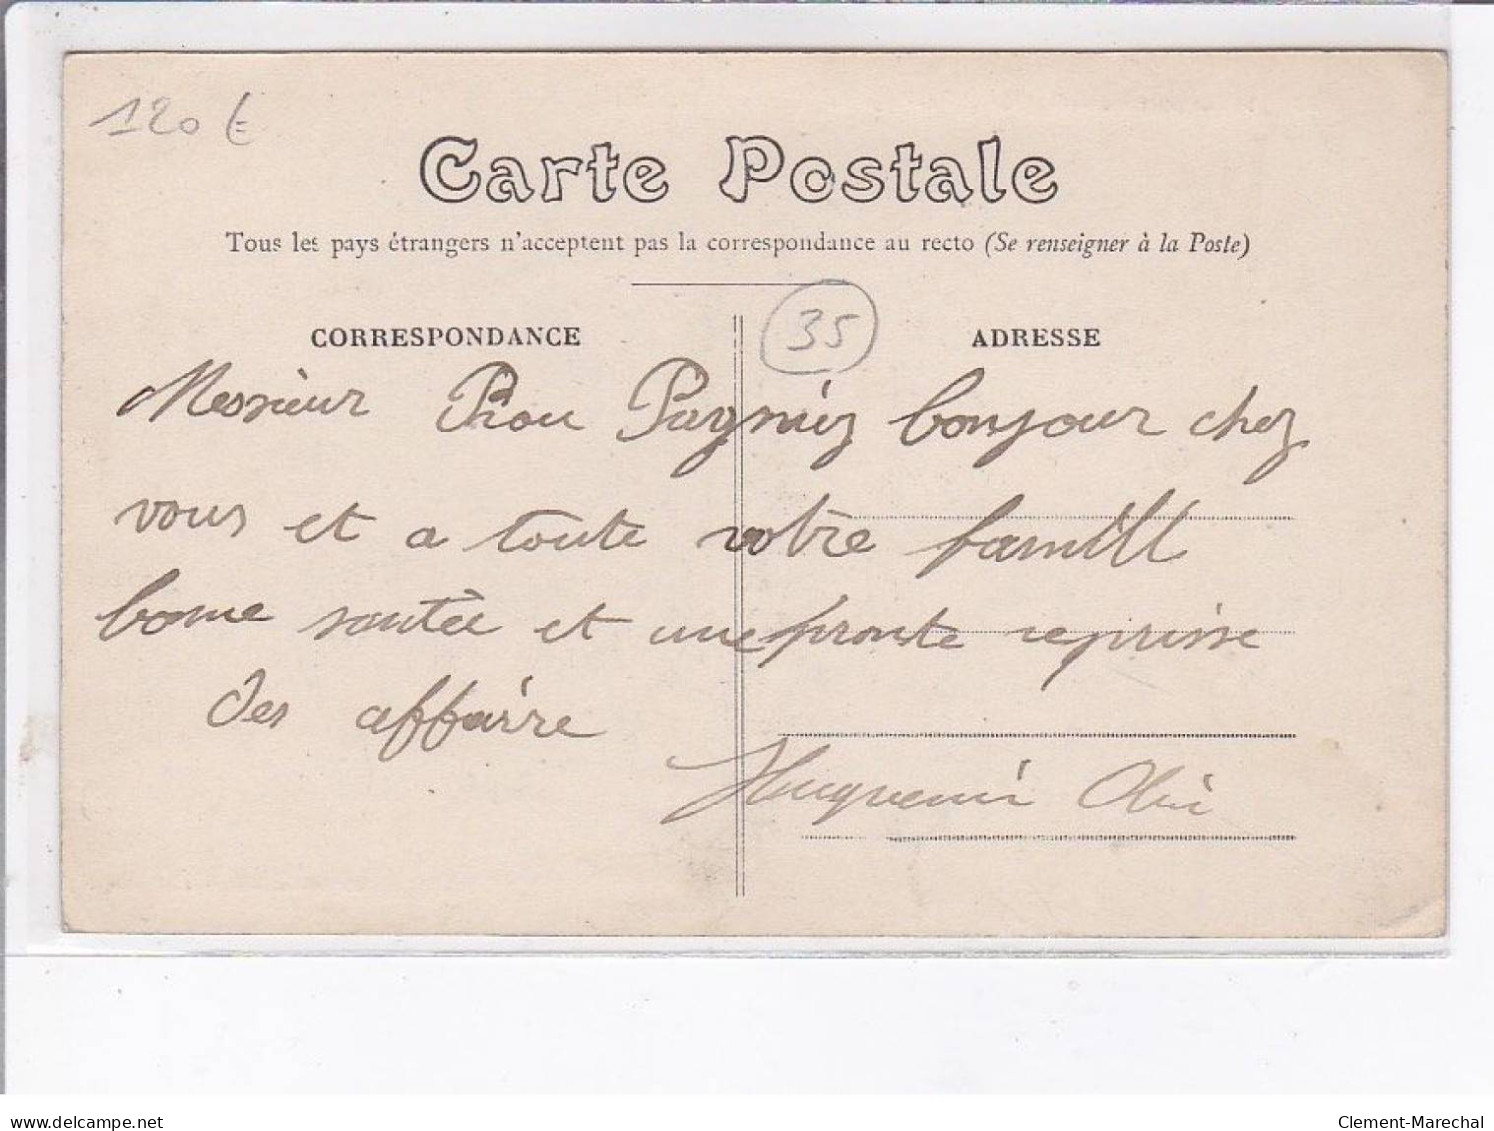 120 €
Carte Postale
Tous les pays étrangers n'acceptent pas la correspondance au recto (Se renseigner à la Poste)
35
CORRESPONDANCE
ADRESSE
Messieur Piou Pagniez bonjour chez
vous et a toute votre famill
bonne santée et une pronte reprisse
des affairre
Huguenin
delcampe.net
Clement-Marechal